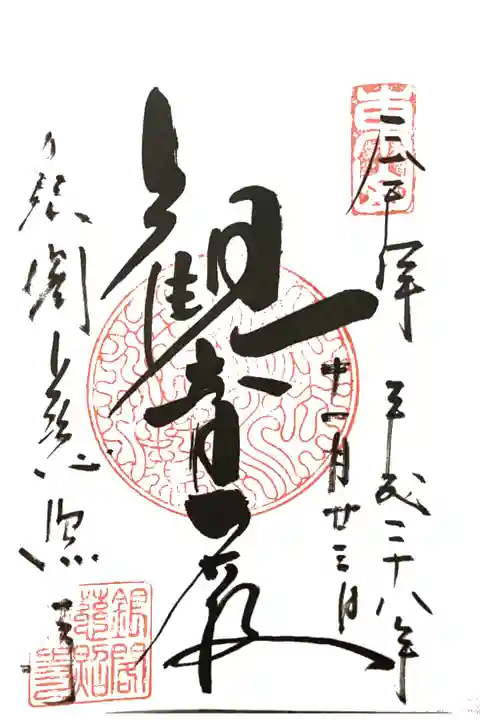 奉拝 平成二十八年
十一月廿三日
觀音殿
銀閣慈照寺
銀閣
慈照
寺